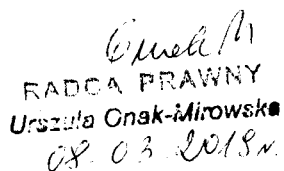 RADCA PRAWNY
Urszula Onak-Mirowska
08. 03. 2019 r.